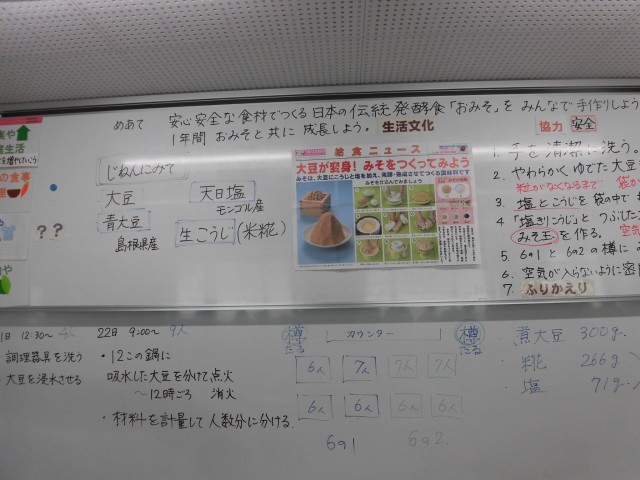 めあて
安心安全な食材でつくる日本の伝統発酵食「おみそ」を みんなで手作りしよう
1年間 おみそと共に 成長しよう。 生活文化
協力 安全
生活
の食事
??
じねんにみそ
大豆
天日塩
モンゴル産
青大豆
島根県産
生こうじ(米糀)
給食ニュース
大豆が変身! みそをつくってみよう
みそは、大豆にこうじと塩を加え、発酵・熟成させてつくる調味料です
みそを仕込んでみましょう
1. 手を清潔に洗う。
2. やわらかくゆでた大豆
粒がなくなるまで
3. 塩とこうじを袋の中で
4. 「塩きりこうじ」と つぶした
みそ玉を作る。 空気
5. 6の1 と 6の2 の樽に
6. 空気が入らないように密
7. ふりかえり
1日 12:30〜
調理器具を洗う
大豆を浸水させる
22日 9:00〜 9人
・12この鍋に
吸水した大豆を分けて点火
〜12時ごろ 消火
・材料を計量して人数分に分ける。
樽 カウンター 樽
たる たる
6人 7人 7人 7人
6人 6人 6人 6人
6の1 6の2
煮大豆 300g
糀 266g
塩 71g